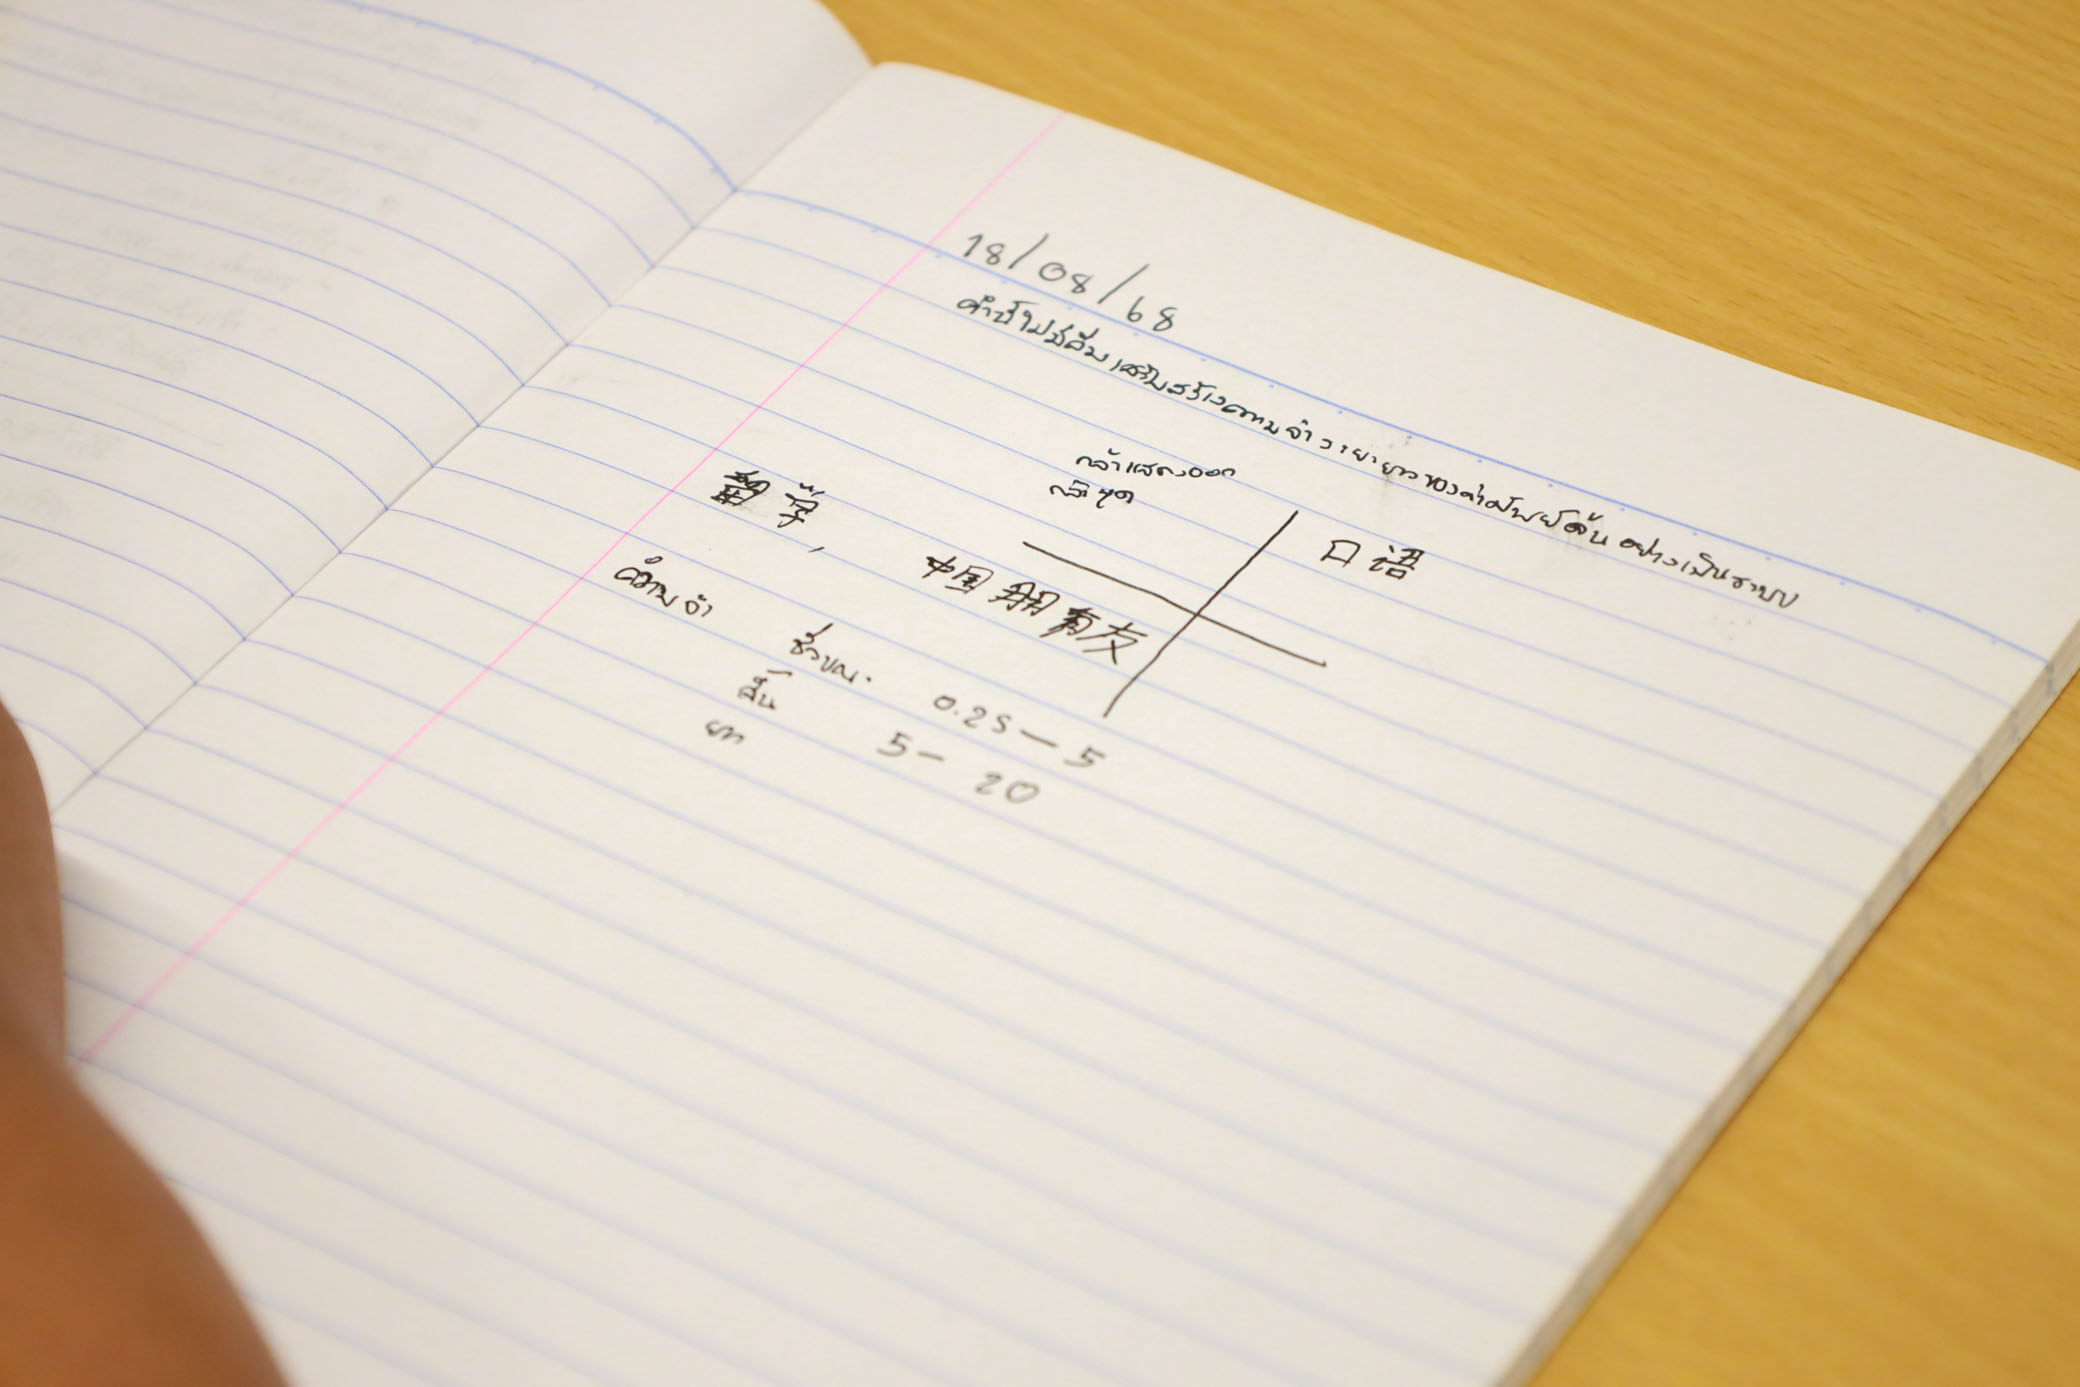 18/08/68
คำชี้ไม่มีลืม เสริมสร้างความจำระยะยาวของคำศัพท์จีน อย่างเป็นระบบ
กล้าแสดงออก
กล้าพูด
留学,
中国朋有友
口语
ความจำ
ชั่วขณะ 0.25 — 5
สั้น 5 — 20
ยาว